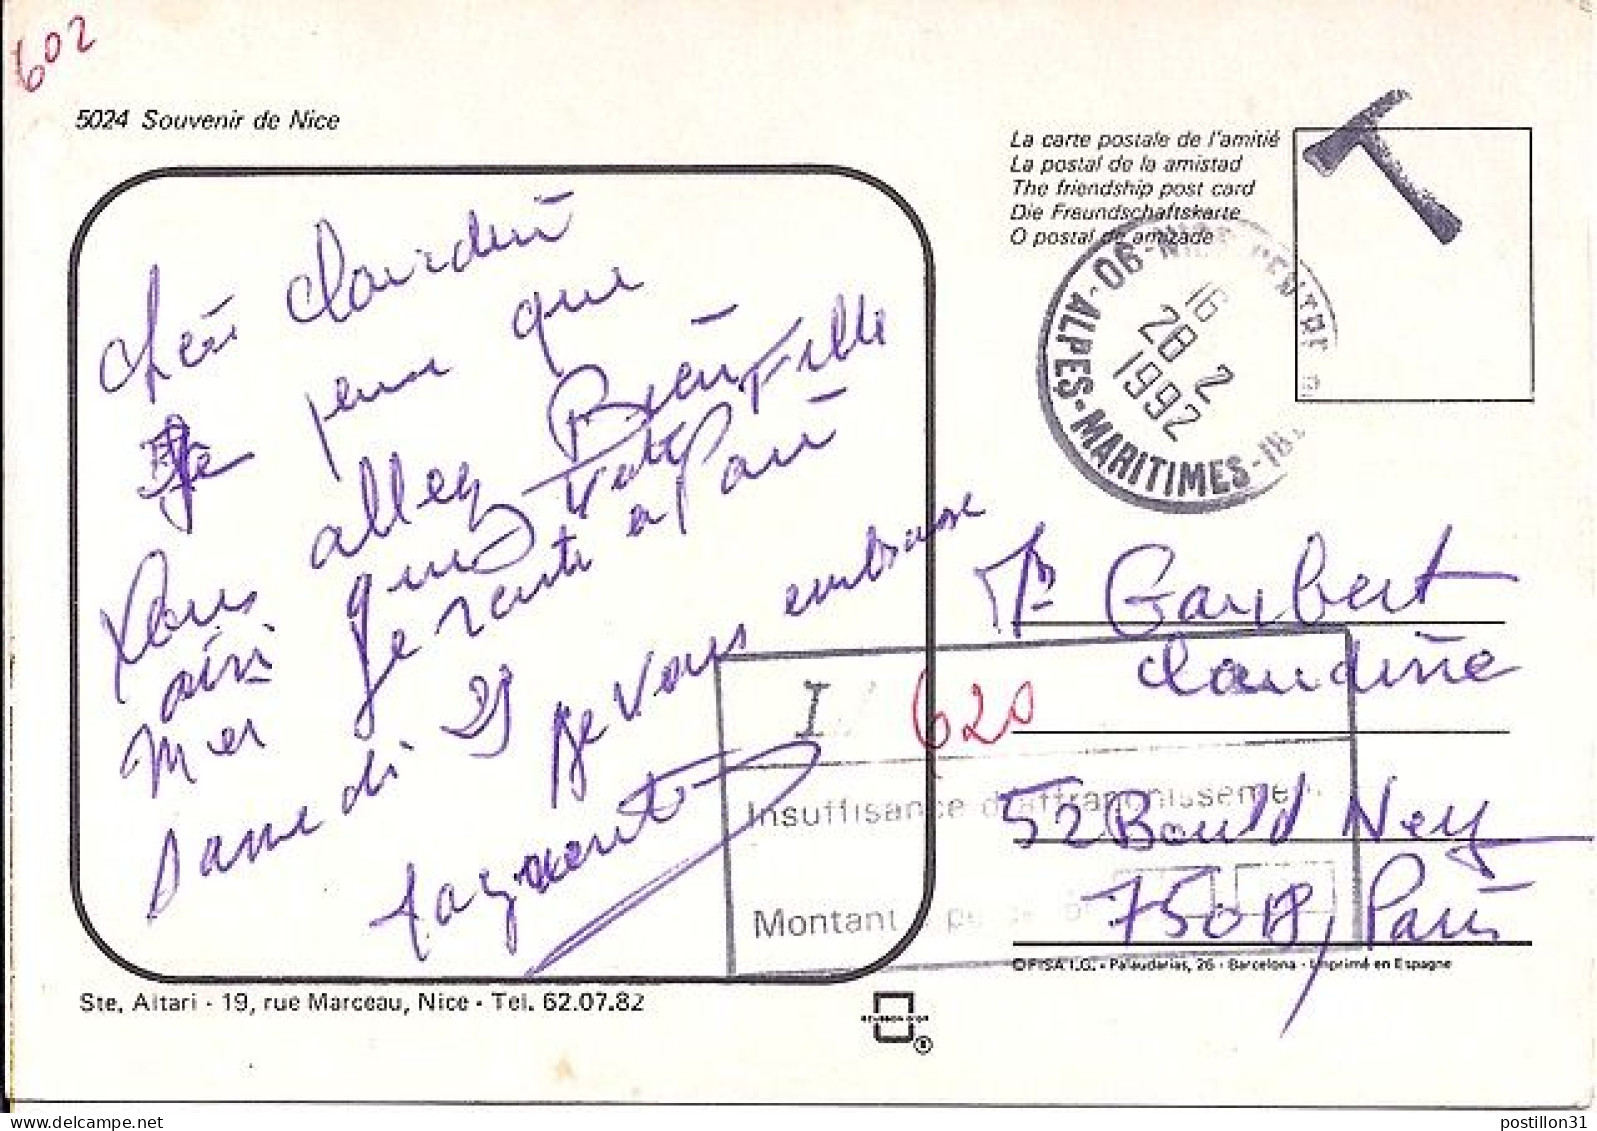 602
5024 Souvenir de Nice
La carte postale de l'amitié
La postal de la amistad
The friendship post card
Die Freundschaftskarte
O postal de amizade
06 - NICE CENTRE
16
28 2
1992
ALPES-MARITIMES
Chère Claudine
Je pense que
Vous allez Bien
ainsi que Votre Fille
Mer je rentre a Paris
Samedi 29
je vous embrasse
T
620
Insuffisance d'affranchissement
Montant à percevoir
Me Garlbert
Claudine
52 Bould Ney
75018, Paris
© FISA I.G. - Palaudarias, 26 - Barcelona - Imprimé en Espagne
Ste. Altari - 19, rue Marceau, Nice - Tel. 62.07.82
ECUSSON D'OR
®
delcampe.net
postillon31